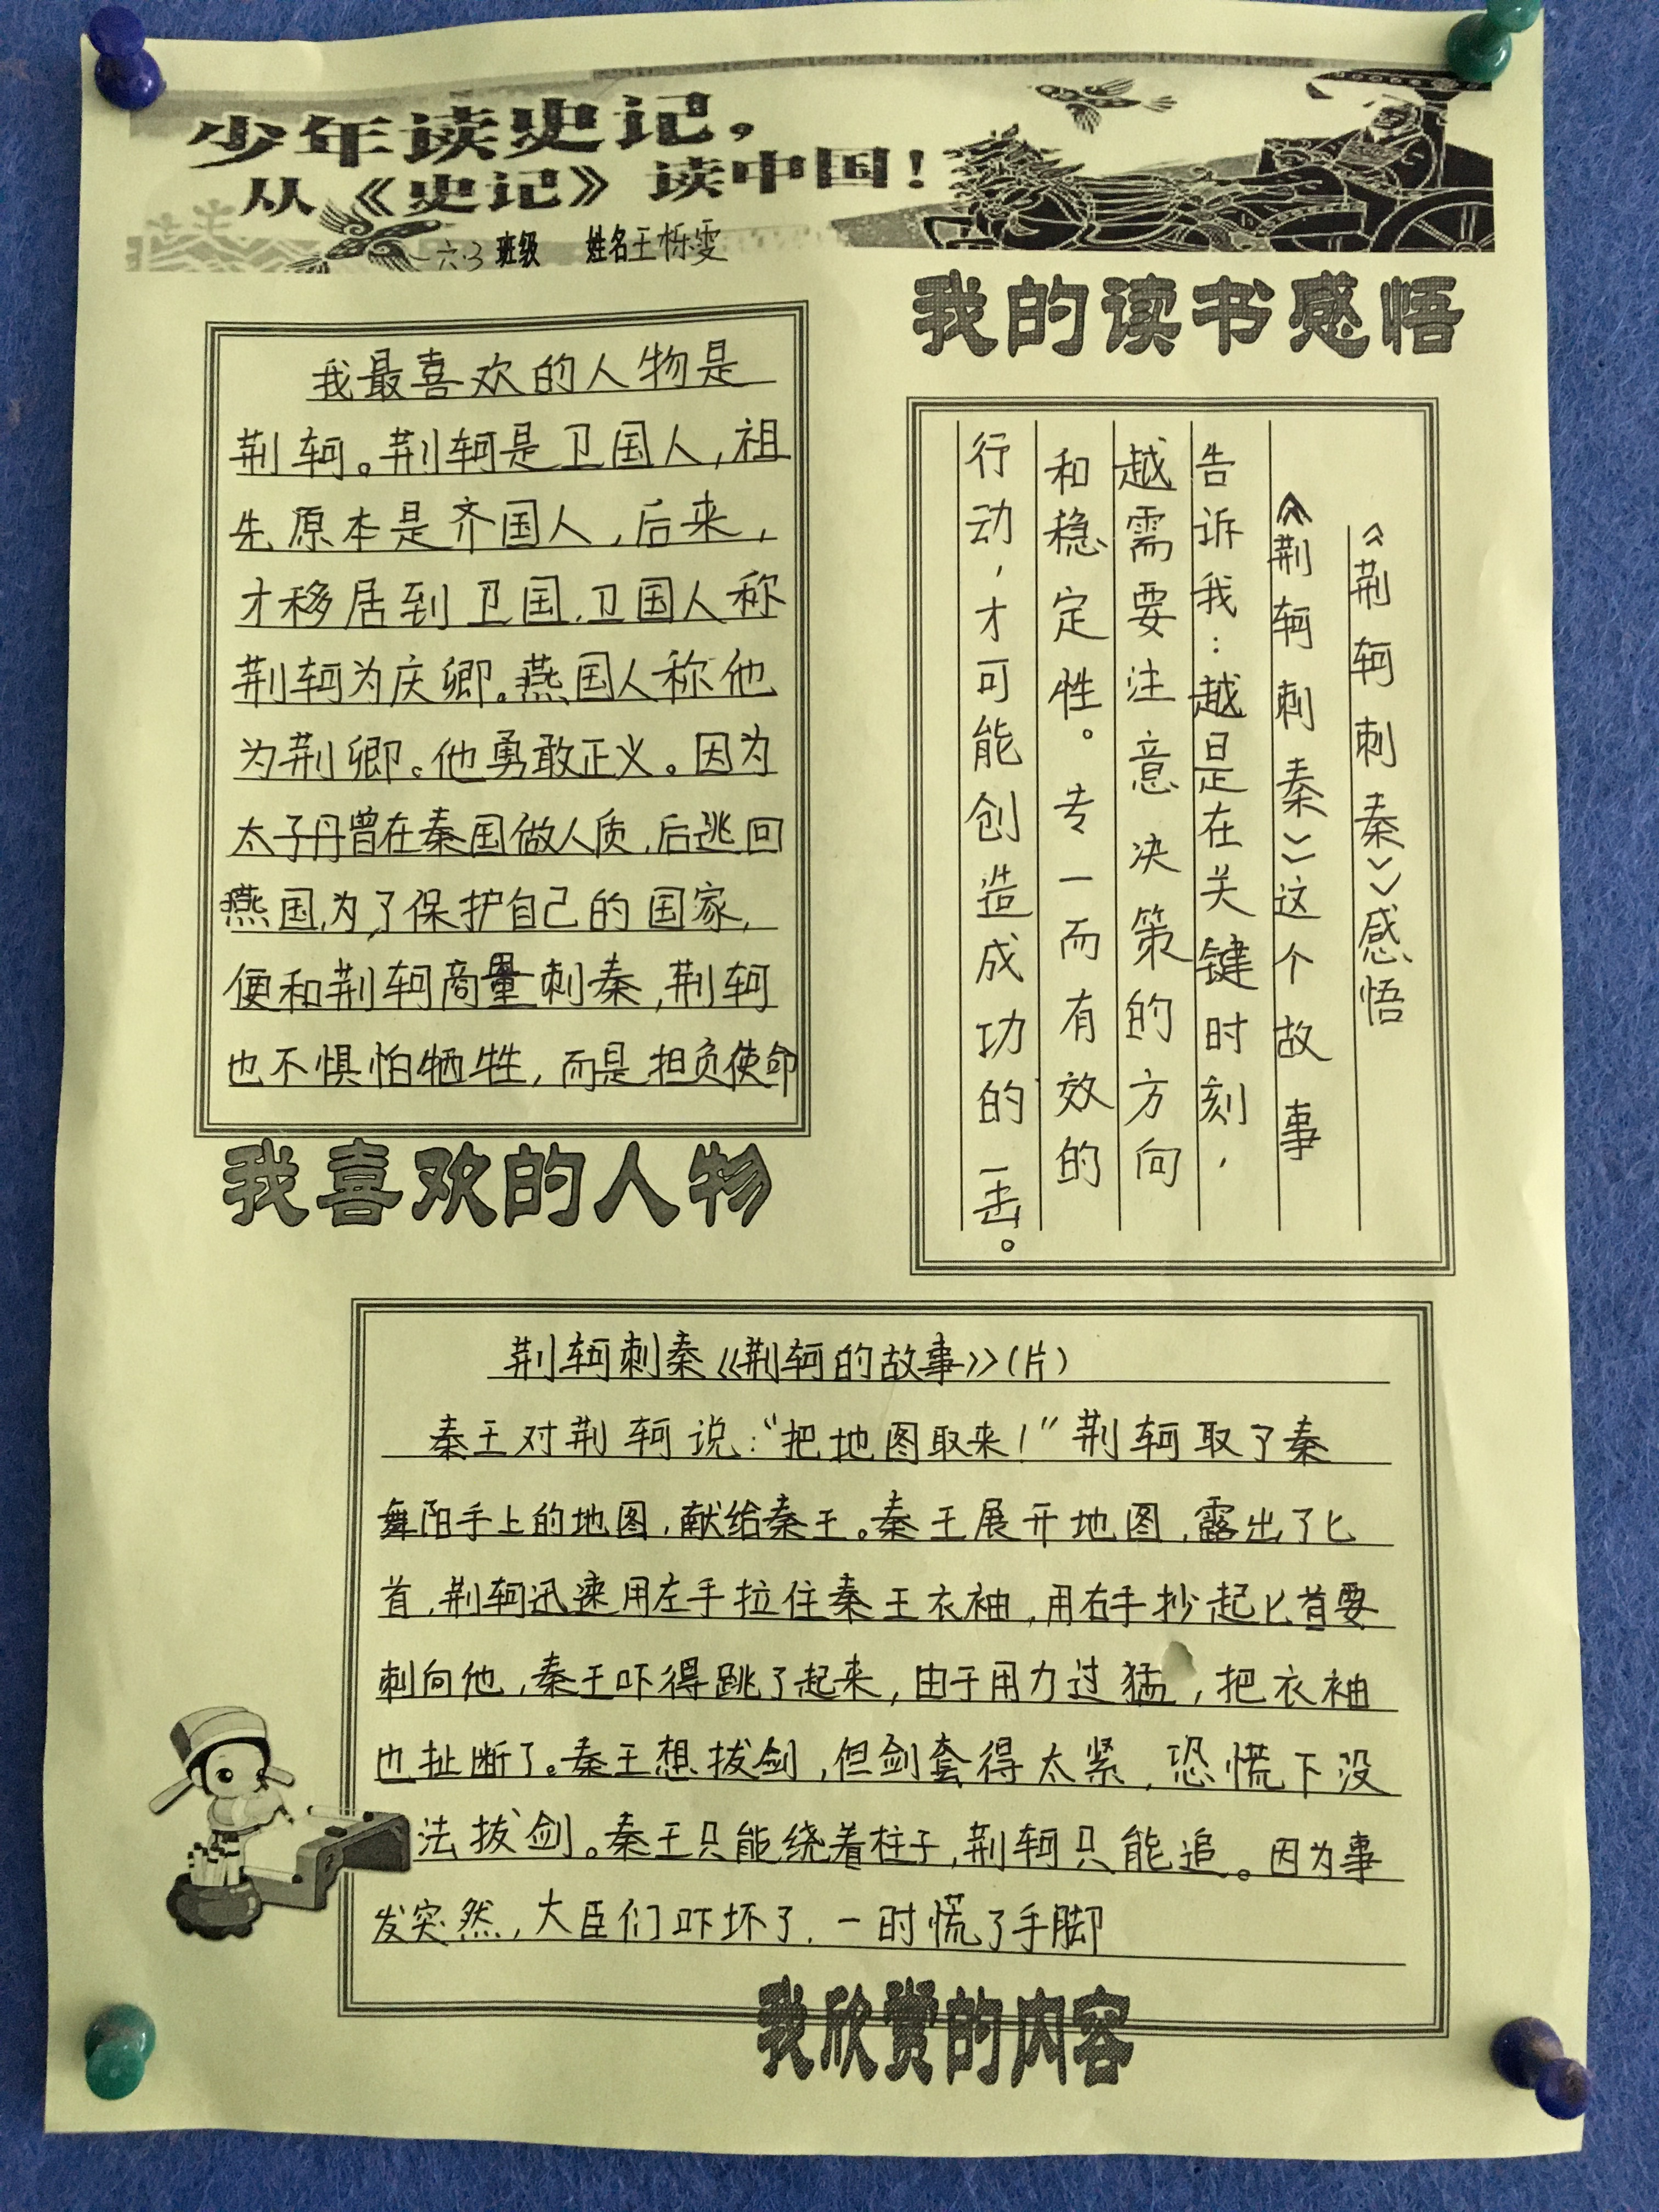 少年读史记，
从《史记》读中国！
六.3 班级 姓名王栎雯
我最喜欢的人物是
荆轲。荆轲是卫国人，祖
先原本是齐国人，后来，
才移居到卫国，卫国人称
荆轲为庆卿。燕国人称他
为荆卿。他勇敢正义。因为
太子丹曾在秦国做人质，后逃回
燕国，为了保护自己的国家，
便和荆轲商量刺秦，荆轲
也不惧怕牺牲，而是担负使命
我喜欢的人物
我的读书感悟
《荆轲刺秦》感悟
《荆轲刺秦》这个故事
告诉我：越是在关键时刻，
越需要注意决策的方向
和稳定性。专一而有效的
行动，才可能创造成功的一击。
荆轲刺秦《荆轲的故事》(片)
秦王对荆轲说：“把地图取来！”荆轲取了秦
舞阳手上的地图，献给秦王。秦王展开地图，露出了匕
首，荆轲迅速用左手拉住秦王衣袖，用右手抄起匕首要
刺向他，秦王吓得跳了起来，由于用力过猛，把衣袖
也扯断了。秦王想拔剑，但剑套得太紧，恐慌下没
法拔剑。秦王只能绕着柱子，荆轲只能追。因为事
发突然，大臣们吓坏了，一时慌了手脚
我欣赏的内容